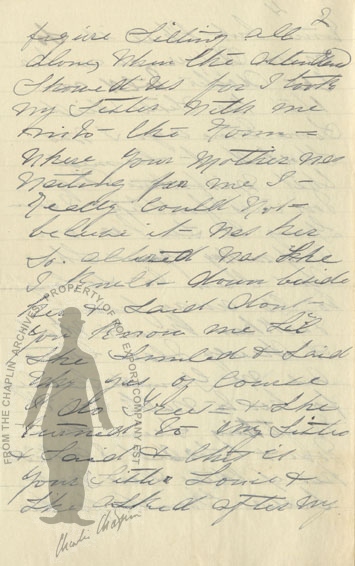 2
figure sitting all
alone, when the attendant
showed us for I took
my sister with me
into the room =
where your Mother was
waiting for me I -
really could not -
believe it was her
so altered was she
I knelt down beside
her & said don't
you know me Lil
she smiled & said
why yes of course
I do & she
turned to my sister
& said & this is
your sister Louie &
she asked after my
FROM THE CHAPLIN ARCHIVES, PROPERTY OF ROY EXPORT COMPANY EST.
Charlie Chaplin